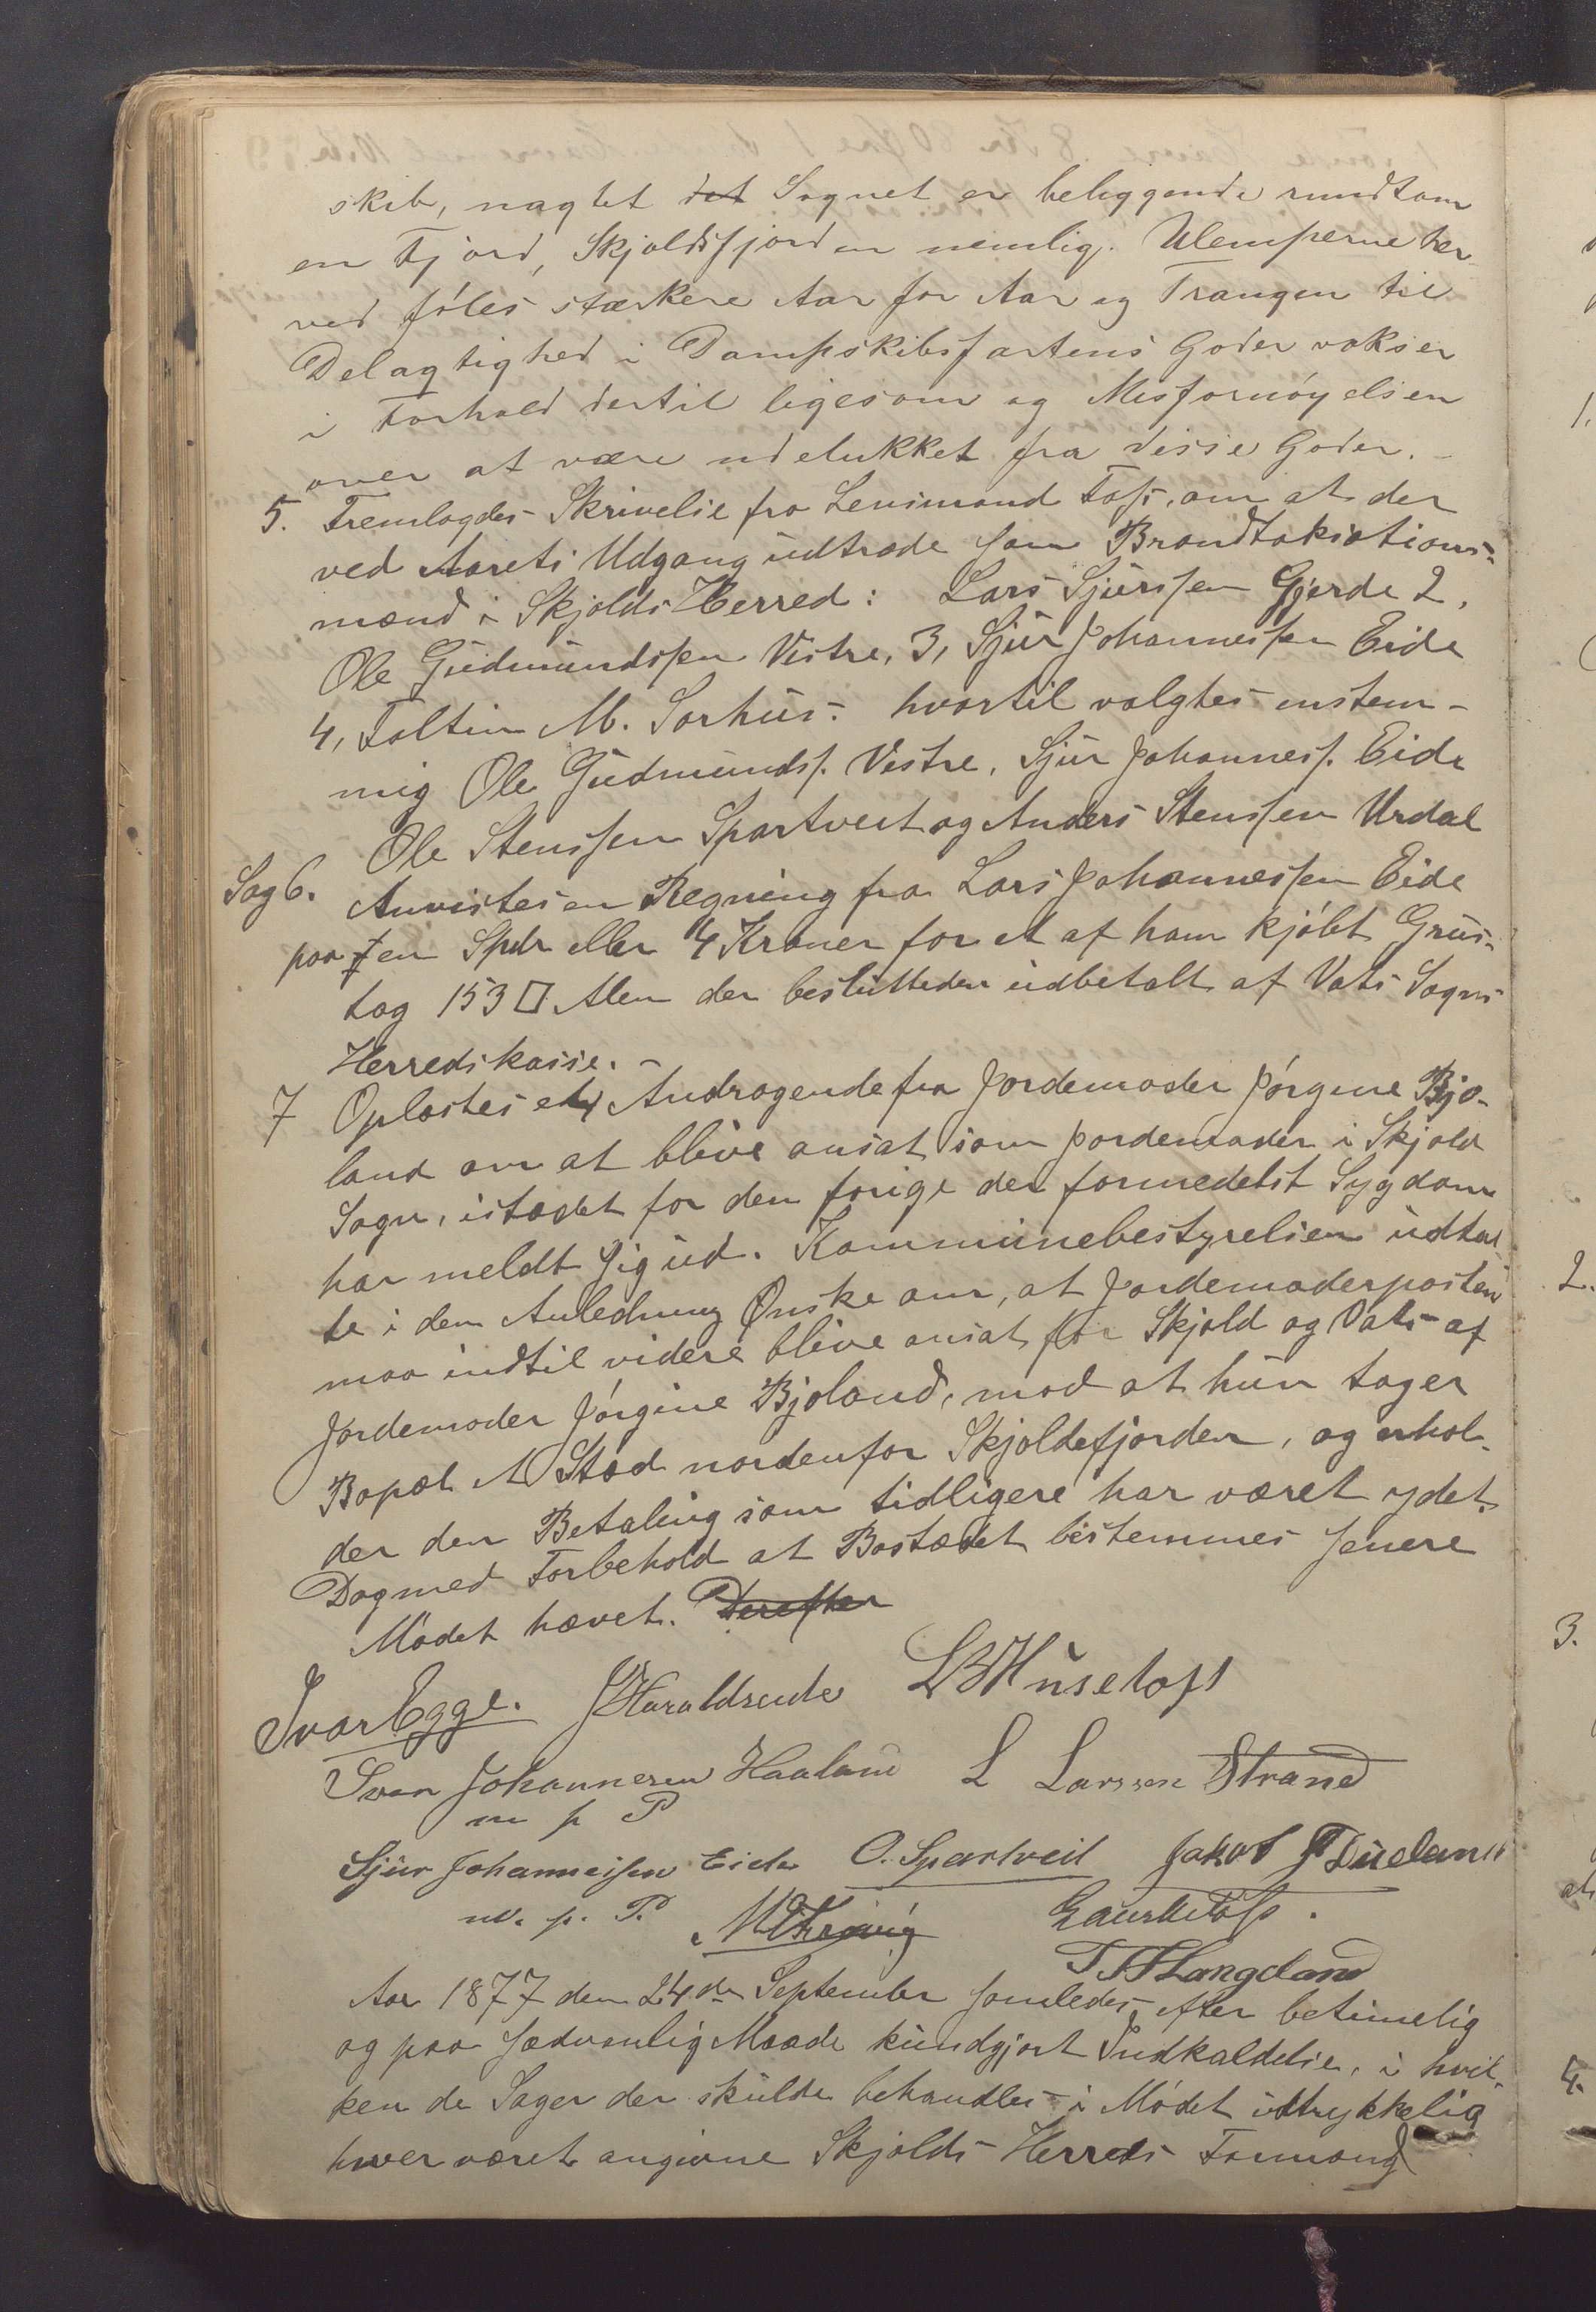 skib, uagtet det Sognet er beliggende rundtom
en Fjord, Skjoldsfjorden nemlig. Ulemperne her-
ved føles stærkere Aar for Aar og Trangen til
Delagtighed i Dampskibsfartens Goder vokser
i Forhold dertil ligesom og Misfornøyelsen
over at være udelukket fra disse Goder. -
5. Fremlagdes Skrivelse fra Lensmand Foss, om at der
ved Aarets Udgang udtræde som Brandtakstions-
mænd i Skjolds Herred: Lars Sjurssen Gjerde 2,
Ole Gudmundssen Vestre, 3, Sjur Johannessen Eide
4, Foltin M. Sørhus. hvortil valgtes enstem-
mig Ole Gudmundss. Vestre, Sjur Johanness. Eide
Ole Stenssen Spartveit og Anders Stenssen Urdal
Sag 6. Anvistes en Regning fra Lars Johannessen Eide
paa 1 en Spdr eller 4 Kroner for et af ham kjøbt Grus-
tag 153 □ Alen der besluttedes udbetalt af Vats Sogns
Herredskasse. -
7 Oplæstes et Andragende fra Jordemoder Jørgine Bjo-
land om at blive ansat som Jordemoder i Skjold
Sogn, istædet for den forige der formedelst Sygdom
har meldt sig ud. Kommunebestyrelsen udtal-
te i den Anledning Ønske om, at Jordemoderposten
maa indtil videre blive ansat for Skjold og Vats af
Jordemoder Jørgine Bjoland, mod at hun tager
Bopæl et Stæd nordenfor Skjoldefjorden, og erhol-
der den Betaling som tidligere har været ydet.
Dog med Forbehold at Bostædet bestemmes senere
Mødet hævet. Derefter
Ivar Egge. J Haraldseide LB Husetoft
Sven Johannesen Haaland L Larssen Strand
m p P
Sjur Johannessen Eide O. Spartveit Jakob J Dueland
m. p. P.
T T Langeland
Aar 1877 den 24de September samledes efter betimelig
og paa sædvanlig Maade kundgjort Indkaldelse, i hvil-
ken de Sager der skulde behandles i Mødet udtrykkelig
hver været angivne Skjolds Herreds Formand